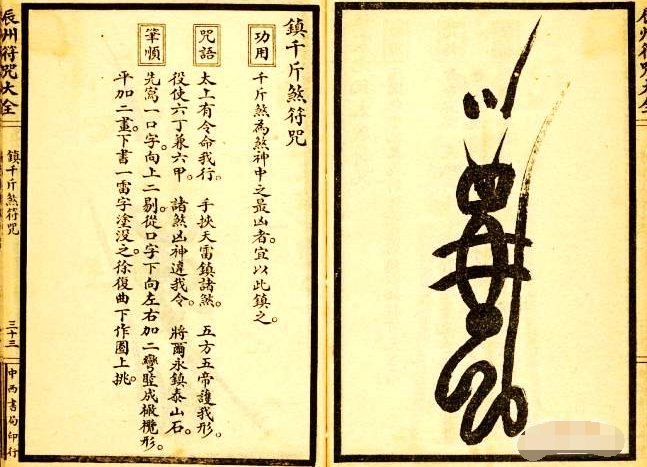 辰州符咒大全
鎮千斤煞符咒
功用
千斤煞為煞神中之最凶者。宜以此鎮之。
咒語
太上有令命我行。手挾天雷鎮諸煞。五方五帝護我形。
役使六丁兼六甲。諸煞凶神違我令。將爾永鎮泰山石。
筆順
先寫一口字。向上二剔。從口字下向左右加二彎豎成橄欖形。
平加二畫。下書一雷字塗沒之。徐復曲下作圈上挑。
辰州符咒大全
鎮千斤煞符咒
三十三
中西書局印行